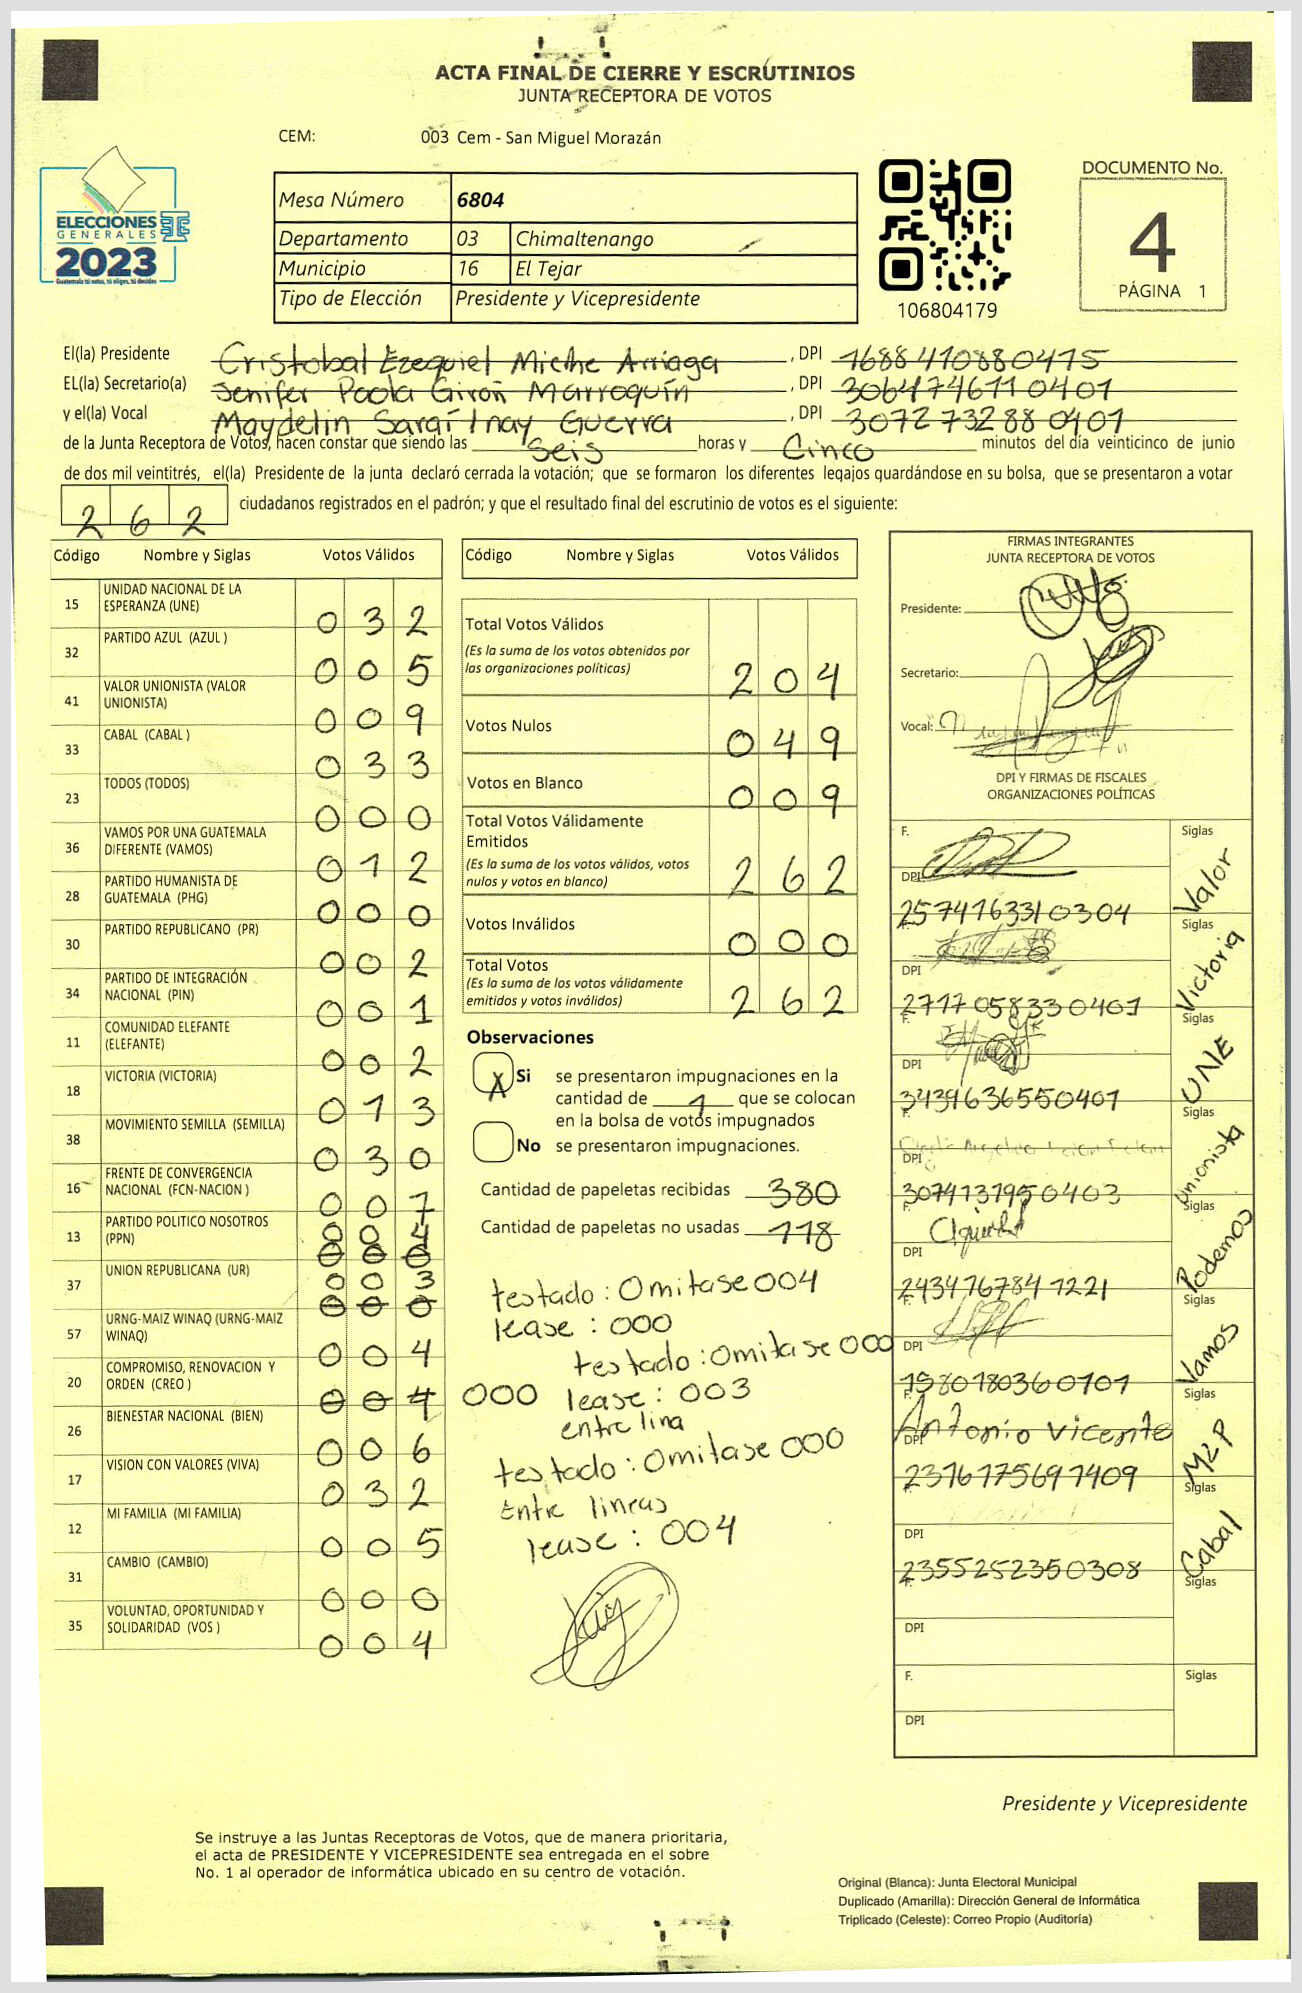 ACTA FINAL DE CIERRE Y ESCRUTINIOS
JUNTA RECEPTORA DE VOTOS
CEM: 003 Cem - San Miguel Morazán
ELECCIONES
GENERALES
2023
Guatemala tú votas, tú eliges, tú decides
Mesa Número 6804
Departamento 03 Chimaltenango
Municipio 16 El Tejar
Tipo de Elección Presidente y Vicepresidente
106804179
DOCUMENTO No.
4
PÁGINA 1
El(la) Presidente Cristobal Ezequiel Miche Arriaga , DPI 1688410880415
EL(la) Secretario(a) Jenifer Paola Girón Marroquín , DPI 3064746110401
y el(la) Vocal Maydelin Saraí Inay Guerra , DPI 3072732880401
de la Junta Receptora de Votos, hacen constar que siendo las Seis horas y Cinco minutos del día veinticinco de junio
de dos mil veintitrés, el(la) Presidente de la junta declaró cerrada la votación; que se formaron los diferentes legajos guardándose en su bolsa, que se presentaron a votar
262 ciudadanos registrados en el padrón; y que el resultado final del escrutinio de votos es el siguiente:
Código Nombre y Siglas Votos Válidos
15 UNIDAD NACIONAL DE LA
ESPERANZA (UNE) 032
32 PARTIDO AZUL (AZUL ) 005
41 VALOR UNIONISTA (VALOR
UNIONISTA) 009
33 CABAL (CABAL ) 033
23 TODOS (TODOS) 000
36 VAMOS POR UNA GUATEMALA
DIFERENTE (VAMOS) 012
28 PARTIDO HUMANISTA DE
GUATEMALA (PHG) 000
30 PARTIDO REPUBLICANO (PR) 002
34 PARTIDO DE INTEGRACIÓN
NACIONAL (PIN) 001
11 COMUNIDAD ELEFANTE
(ELEFANTE) 002
18 VICTORIA (VICTORIA) 013
38 MOVIMIENTO SEMILLA (SEMILLA) 030
16 FRENTE DE CONVERGENCIA
NACIONAL (FCN-NACION ) 007
13 PARTIDO POLITICO NOSOTROS
(PPN) 004
000
37 UNION REPUBLICANA (UR) 003
000
57 URNG-MAIZ WINAQ (URNG-MAIZ
WINAQ) 004
20 COMPROMISO, RENOVACION Y
ORDEN (CREO ) 004 000
26 BIENESTAR NACIONAL (BIEN) 006
17 VISION CON VALORES (VIVA) 032
12 MI FAMILIA (MI FAMILIA) 005
31 CAMBIO (CAMBIO) 000
35 VOLUNTAD, OPORTUNIDAD Y
SOLIDARIDAD (VOS ) 004
Código Nombre y Siglas Votos Válidos
Total Votos Válidos
(Es la suma de los votos obtenidos por
las organizaciones políticas) 204
Votos Nulos 049
Votos en Blanco 009
Total Votos Válidamente
Emitidos
(Es la suma de los votos válidos, votos
nulos y votos en blanco) 262
Votos Inválidos 000
Total Votos
(Es la suma de los votos válidamente
emitidos y votos inválidos) 262
Observaciones
X Si se presentaron impugnaciones en la
cantidad de 1 que se colocan
en la bolsa de votos impugnados
No se presentaron impugnaciones.
Cantidad de papeletas recibidas 380
Cantidad de papeletas no usadas 118
testado: Omitase 004
lease : 000
testado: omitase 000
lease : 003
entre lina
testado: Omitase 000
Entre lineas
lease : 004
FIRMAS INTEGRANTES
JUNTA RECEPTORA DE VOTOS
Presidente:
Secretario:
Vocal:
DPI Y FIRMAS DE FISCALES
ORGANIZACIONES POLÍTICAS
F. Siglas
DPI 2574163310304 Valor
F. Siglas
DPI 2717058330401 Victoria
F. Siglas
DPI 3439636550401 UNE
F. Siglas
DPI 3074137950403 Unionista
F. Siglas
DPI 2434767847221 Podemos
F. Siglas
DPI 1980180360101 Vamos
F. Antonio Vicente Siglas
DPI 2376175697409 MLP
F. Siglas
DPI 2355252350308 Cabal
F. Siglas
DPI
F. Siglas
DPI
Presidente y Vicepresidente
Se instruye a las Juntas Receptoras de Votos, que de manera prioritaria,
el acta de PRESIDENTE Y VICEPRESIDENTE sea entregada en el sobre
No. 1 al operador de informática ubicado en su centro de votación.
Original (Blanca): Junta Electoral Municipal
Duplicado (Amarilla): Dirección General de Informática
Triplicado (Celeste): Correo Propio (Auditoría)